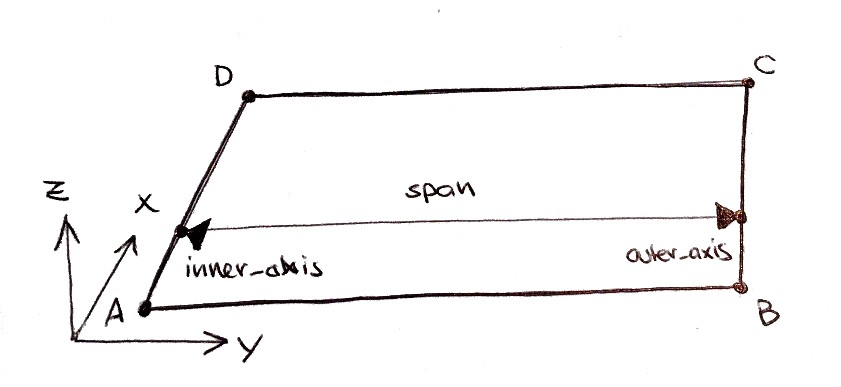 D
C
Z
X
span
inner_axis
outer_axis
A
B
Y